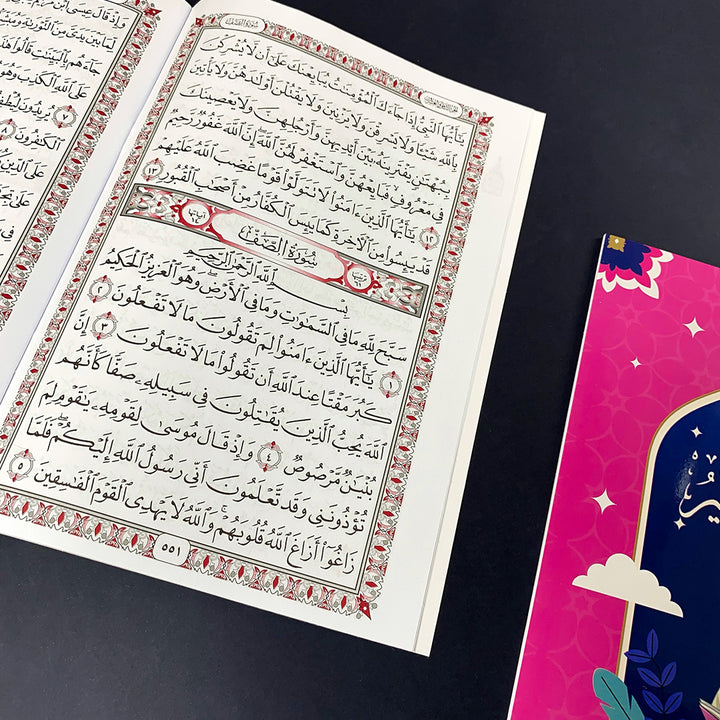 سُورَةُ الصَّفِّ
يَٰٓأَيُّهَا ٱلنَّبِيُّ إِذَا جَآءَكَ ٱلْمُؤْمِنَٰتُ يُبَايِعْنَكَ عَلَىٰٓ أَن لَّا يُشْرِكْنَ
بِٱللَّهِ شَيْـًٔا وَلَا يَسْرِقْنَ وَلَا يَزْنِينَ وَلَا يَقْتُلْنَ أَوْلَٰدَهُنَّ وَلَا يَأْتِينَ
بِبُهْتَٰنٍ يَفْتَرِينَهُۥ بَيْنَ أَيْدِيهِنَّ وَأَرْجُلِهِنَّ وَلَا يَعْصِينَكَ
فِى مَعْرُوفٍ فَبَايِعْهُنَّ وَٱسْتَغْفِرْ لَهُنَّ ٱللَّهَ إِنَّ ٱللَّهَ غَفُورٌ رَّحِيمٌ
١٢ يَٰٓأَيُّهَا ٱلَّذِينَ ءَامَنُوا۟ لَا تَتَوَلَّوْا۟ قَوْمًا غَضِبَ ٱللَّهُ عَلَيْهِمْ
قَدْ يَئِسُوا۟ مِنَ ٱلْءَاخِرَةِ كَمَا يَئِسَ ٱلْكُفَّارُ مِنْ أَصْحَٰبِ ٱلْقُبُورِ ١٣
سُورَةُ الصَّفِّ آيَاتُهَا ١٤
بِسْمِ ٱللَّهِ ٱلرَّحْمَٰنِ ٱلرَّحِيمِ
سَبَّحَ لِلَّهِ مَا فِى ٱلسَّمَٰوَٰتِ وَمَا فِى ٱلْأَرْضِ وَهُوَ ٱلْعَزِيزُ ٱلْحَكِيمُ
١ يَٰٓأَيُّهَا ٱلَّذِينَ ءَامَنُوا۟ لِمَ تَقُولُونَ مَا لَا تَفْعَلُونَ ٢
كَبُرَ مَقْتًا عِندَ ٱللَّهِ أَن تَقُولُوا۟ مَا لَا تَفْعَلُونَ ٣ إِنَّ
ٱللَّهَ يُحِبُّ ٱلَّذِينَ يُقَٰتِلُونَ فِى سَبِيلِهِۦ صَفًّا كَأَنَّهُم
بُنْيَٰنٌ مَّرْصُوصٌ ٤ وَإِذْ قَالَ مُوسَىٰ لِقَوْمِهِۦ يَٰقَوْمِ لِمَ
تُؤْذُونَنِى وَقَد تَّعْلَمُونَ أَنِّى رَسُولُ ٱللَّهِ إِلَيْكُمْ فَلَمَّا
زَاغُوٓا۟ أَزَاغَ ٱللَّهُ قُلُوبَهُمْ وَٱللَّهُ لَا يَهْدِى ٱلْقَوْمَ ٱلْفَٰسِقِينَ ٥
٥٥١
وَإِذْ قَالَ عِيسَى ٱبْنُ
لِّمَا بَيْنَ يَدَىَّ مِنَ ٱلتَّوْرَىٰةِ
جَآءَهُم بِٱلْبَيِّنَٰتِ قَالُوا۟ هَٰذَا
عَلَى ٱللَّهِ ٱلْكَذِبَ وَهُوَ
٧ يُرِيدُونَ
ٱلْكَٰفِرُونَ ٨
عَلَى ٱلدِّينِ